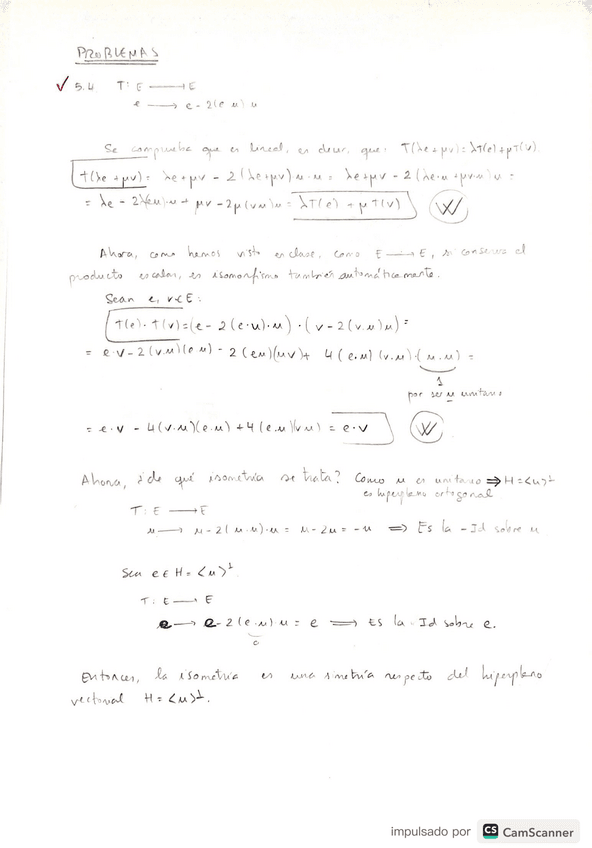 PROBLEMAS
✓ 5.4. T: E ⟶ E
e ⟶ e - 2(e·u)·u
Se comprueba que es lineal, es decir, que: T(λe+μv) = λT(e)+μT(v).
T(λe+μv) = λe+μv - 2(λe+μv)u·u = λe+μv - 2(λe·u+μv·u)u =
= λe - 2λ(eu)·u + μv - 2μ(vu)u = λT(e) + μT(v)
Ahora, como hemos visto en clase, como E ⟶ E, si conserva el
producto escalar, es isomorfismo también automáticamente.
Sean e, v∈E:
T(e)·T(v) = (e - 2(e·u)·u)·(v - 2(v·u)u) =
= e·v - 2(v·u)(e·u) - 2(eu)(uv) + 4(e·u)(v·u)·(u·u) =
1
por ser u unitario
= e·v - 4(v·u)(e·u) + 4(e·u)(vu) = e·v
Ahora, ¿de qué isometría se trata? Como u es unitario ⇒ H=<u>⊥
es hiperplano ortogonal
T: E ⟶ E
u ⟶ u - 2(u·u)·u = u - 2u = -u ⇒ Es la -Id sobre u
Sea e∈H = <u>⊥
T: E ⟶ E
e ⟶ e - 2(e·u)·u = e ⟹ Es la Id sobre e.
0
Entonces, la isometría es una simetría respecto del hiperplano
vectorial H = <u>⊥.
impulsado por CS CamScanner